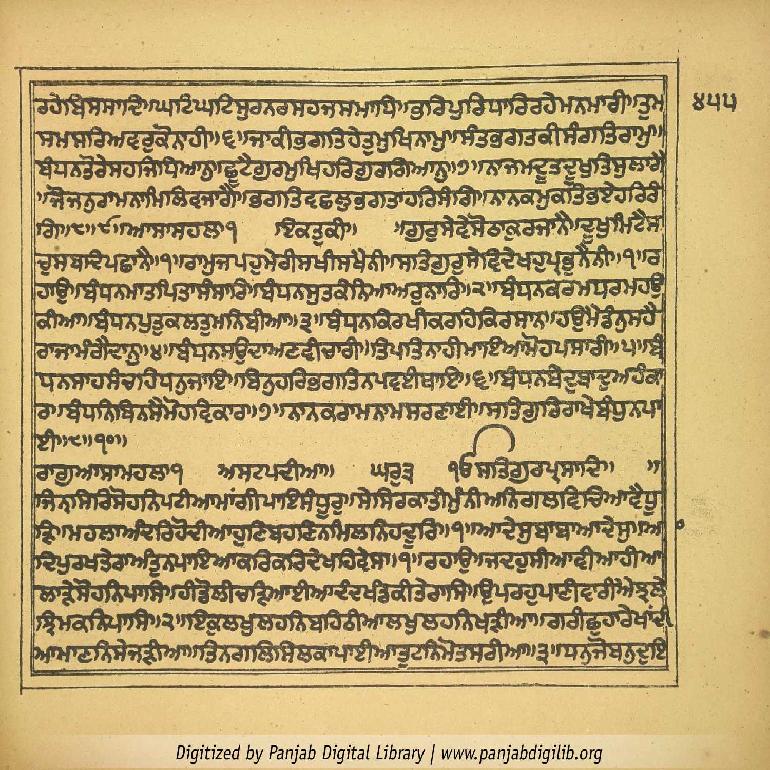 ੪੫੫
ਰਹੇਬਿਸਮਾਦਿ॥ਘਟਿਘਟਿਸੁਰਨਰਸਹਜਸਮਾਧਿ॥ਭਰਿਪੁਰਿਧਾਰਿਰਹੇਮਨਮਾਰੀ॥ਤੁਮ
ਸਮਸਰਿਅਵਰੁਕੋਨਾਹੀ॥੬॥ਜਾਕੀਭਗਤਿਹੇਤੁਮੁਖਿਨਾਮੁ॥ਸੰਤਭਗਤਕੀਸੰਗਤਿਰਾਮੁ॥
ਬੰਧਨਤੋਰੇਸਹਜਿਧਿਆਨੁ॥ਛੂਟੈਗੁਰਮੁਖਿਹਰਿਗੁਰਗਿਆਨੁ॥੭॥ਨਾਜਮਦੂਤਦੂਖੁਤਿਸੁਲਾਗੈ
॥ਜੋਜਨੁਰਾਮਨਾਮਿਲਿਵਜਾਗੈ॥ਭਗਤਿਵਛਲੁਭਗਤਾਹਰਿਸੰਗਿ॥ਨਾਨਕਮੁਕਤਿਭਏਹਰਿਰੰ
ਗਿ॥੮॥੯॥ਆਸਾਮਹਲਾ੧ ਇਕਤੁਕੀ॥ ॥ਗੁਰੁਸੇਵੇਸੋਠਾਕੁਰਜਾਨੈ॥ਦੂਖੁਮਿਟੈਸ
ਚੁਸਬਦਿਪਛਾਨੈ॥੧॥ਰਾਮੁਜਪਹੁਮੇਰੀਸਖੀਸਖੈਨੀ॥ਸਤਿਗੁਰੁਸੇਵਿਦੇਖਹੁਪ੍ਰਭੁਨੈਨੀ॥੧॥ਰ
ਹਾਉ॥ਬੰਧਨਮਾਤਪਿਤਾਸੰਸਾਰਿ॥ਬੰਧਨਸੁਤਕੰਨਿਆਅਰੁਨਾਰਿ॥੨॥ਬੰਧਨਕਰਮਧਰਮਹਉ
ਕੀਆ॥ਬੰਧਨਪੁਤੁਕਲਤੁਮਨਿਬੀਆ॥੩॥ਬੰਧਨਕਿਰਖੀਕਰਹਿਕਿਰਸਾਨ॥ਹਉਮੈਡੰਨੁਸਹੈ
ਰਾਜਾਮੰਗੈਦਾਨ॥੪॥ਬੰਧਨਸਉਦਾਅਣਵੀਚਾਰੀ॥ਤਿਪਤਿਨਾਹੀਮਾਇਆਮੋਹਪਸਾਰੀ॥੫॥ਬੰ
ਧਨਸਾਹਸੰਚਹਿਧਨੁਜਾਇ॥ਬਿਨੁਹਰਿਭਗਤਿਨਪਵਈਥਾਇ॥੬॥ਬੰਧਨਬੇਦੁਬਾਦੁਅਹੰਕਾ
ਰ॥ਬੰਧਨਿਬਿਨਸੈਮੋਹਵਿਕਾਰ॥੭॥ਨਾਨਕਰਾਮਨਾਮਸਰਣਾਈ॥ਸਤਿਗੁਰਿਰਾਖੇਬੰਧੁਨਪਾ
ਈ॥੮॥੧੦॥
ਰਾਗੁਆਸਾਮਹਲਾ੧ ਅਸਟਪਦੀਆ॥ ਘਰੁ੩ ੴਸਤਿਗੁਰਪ੍ਰਸਾਦਿ॥ ॥
ਜਿਨਸਿਰਿਸੋਹਨਿਪਟੀਆਮਾਂਗੀਪਾਇਸੰਧੂਰੁ॥ਸੇਸਿਰਕਾਤੀਮੁੰਨੀਅਨਿਗਲਵਿਚਿਆਵੈਧੂ
ੜਿ॥ਮਹਲਾਅੰਦਰਿਹੋਦੀਆਹੁਣਿਬਹਣਿਨਮਿਲਨਿਹਦੂਰਿ॥੧॥ਆਦੇਸੁਬਾਬਾਆਦੇਸੁ॥ਆ
ਦਿਪੁਰਖਤੇਰਾਅੰਤੁਨਪਾਇਆਕਰਿਕਰਿਦੇਖਹਿਵੇਸ॥੧॥ਰਹਾਉ॥ਜਦਹੁਸੀਆਵੀਆਹੀਆ
ਲਾੜੇਸੋਹਨਿਪਾਸਿ॥ਹੀਡੋਲੀਚੜਿਆਈਆਦੰਦਖੰਡਕੀਤੇਰਾਸਿ॥ਉਪਰਹੁਪਾਣੀਵਾਰੀਐਝਲੇ
ਝਿਮਕਨਿਪਾਸਿ॥੨॥ਇਕੁਲਖੁਲਹਨਿਬਹਿਠੀਆਲਖੁਲਹਨਿਖੜੀਆ॥ਗਰੀਛੁਹਾਰੇਖਾਂਦੀ
ਆਮਾਣਨਿਸੇਜੜੀਆ॥ਤਿਨਗਲਿਸਿਲਕਾਪਾਈਆਤੁਟਨਿਮੋਤਸਰੀਆ॥੩॥ਧਨੁਜੋਬਨੁਦੁਇ
Digitized by Panjab Digital Library | www.panjabdigilib.org